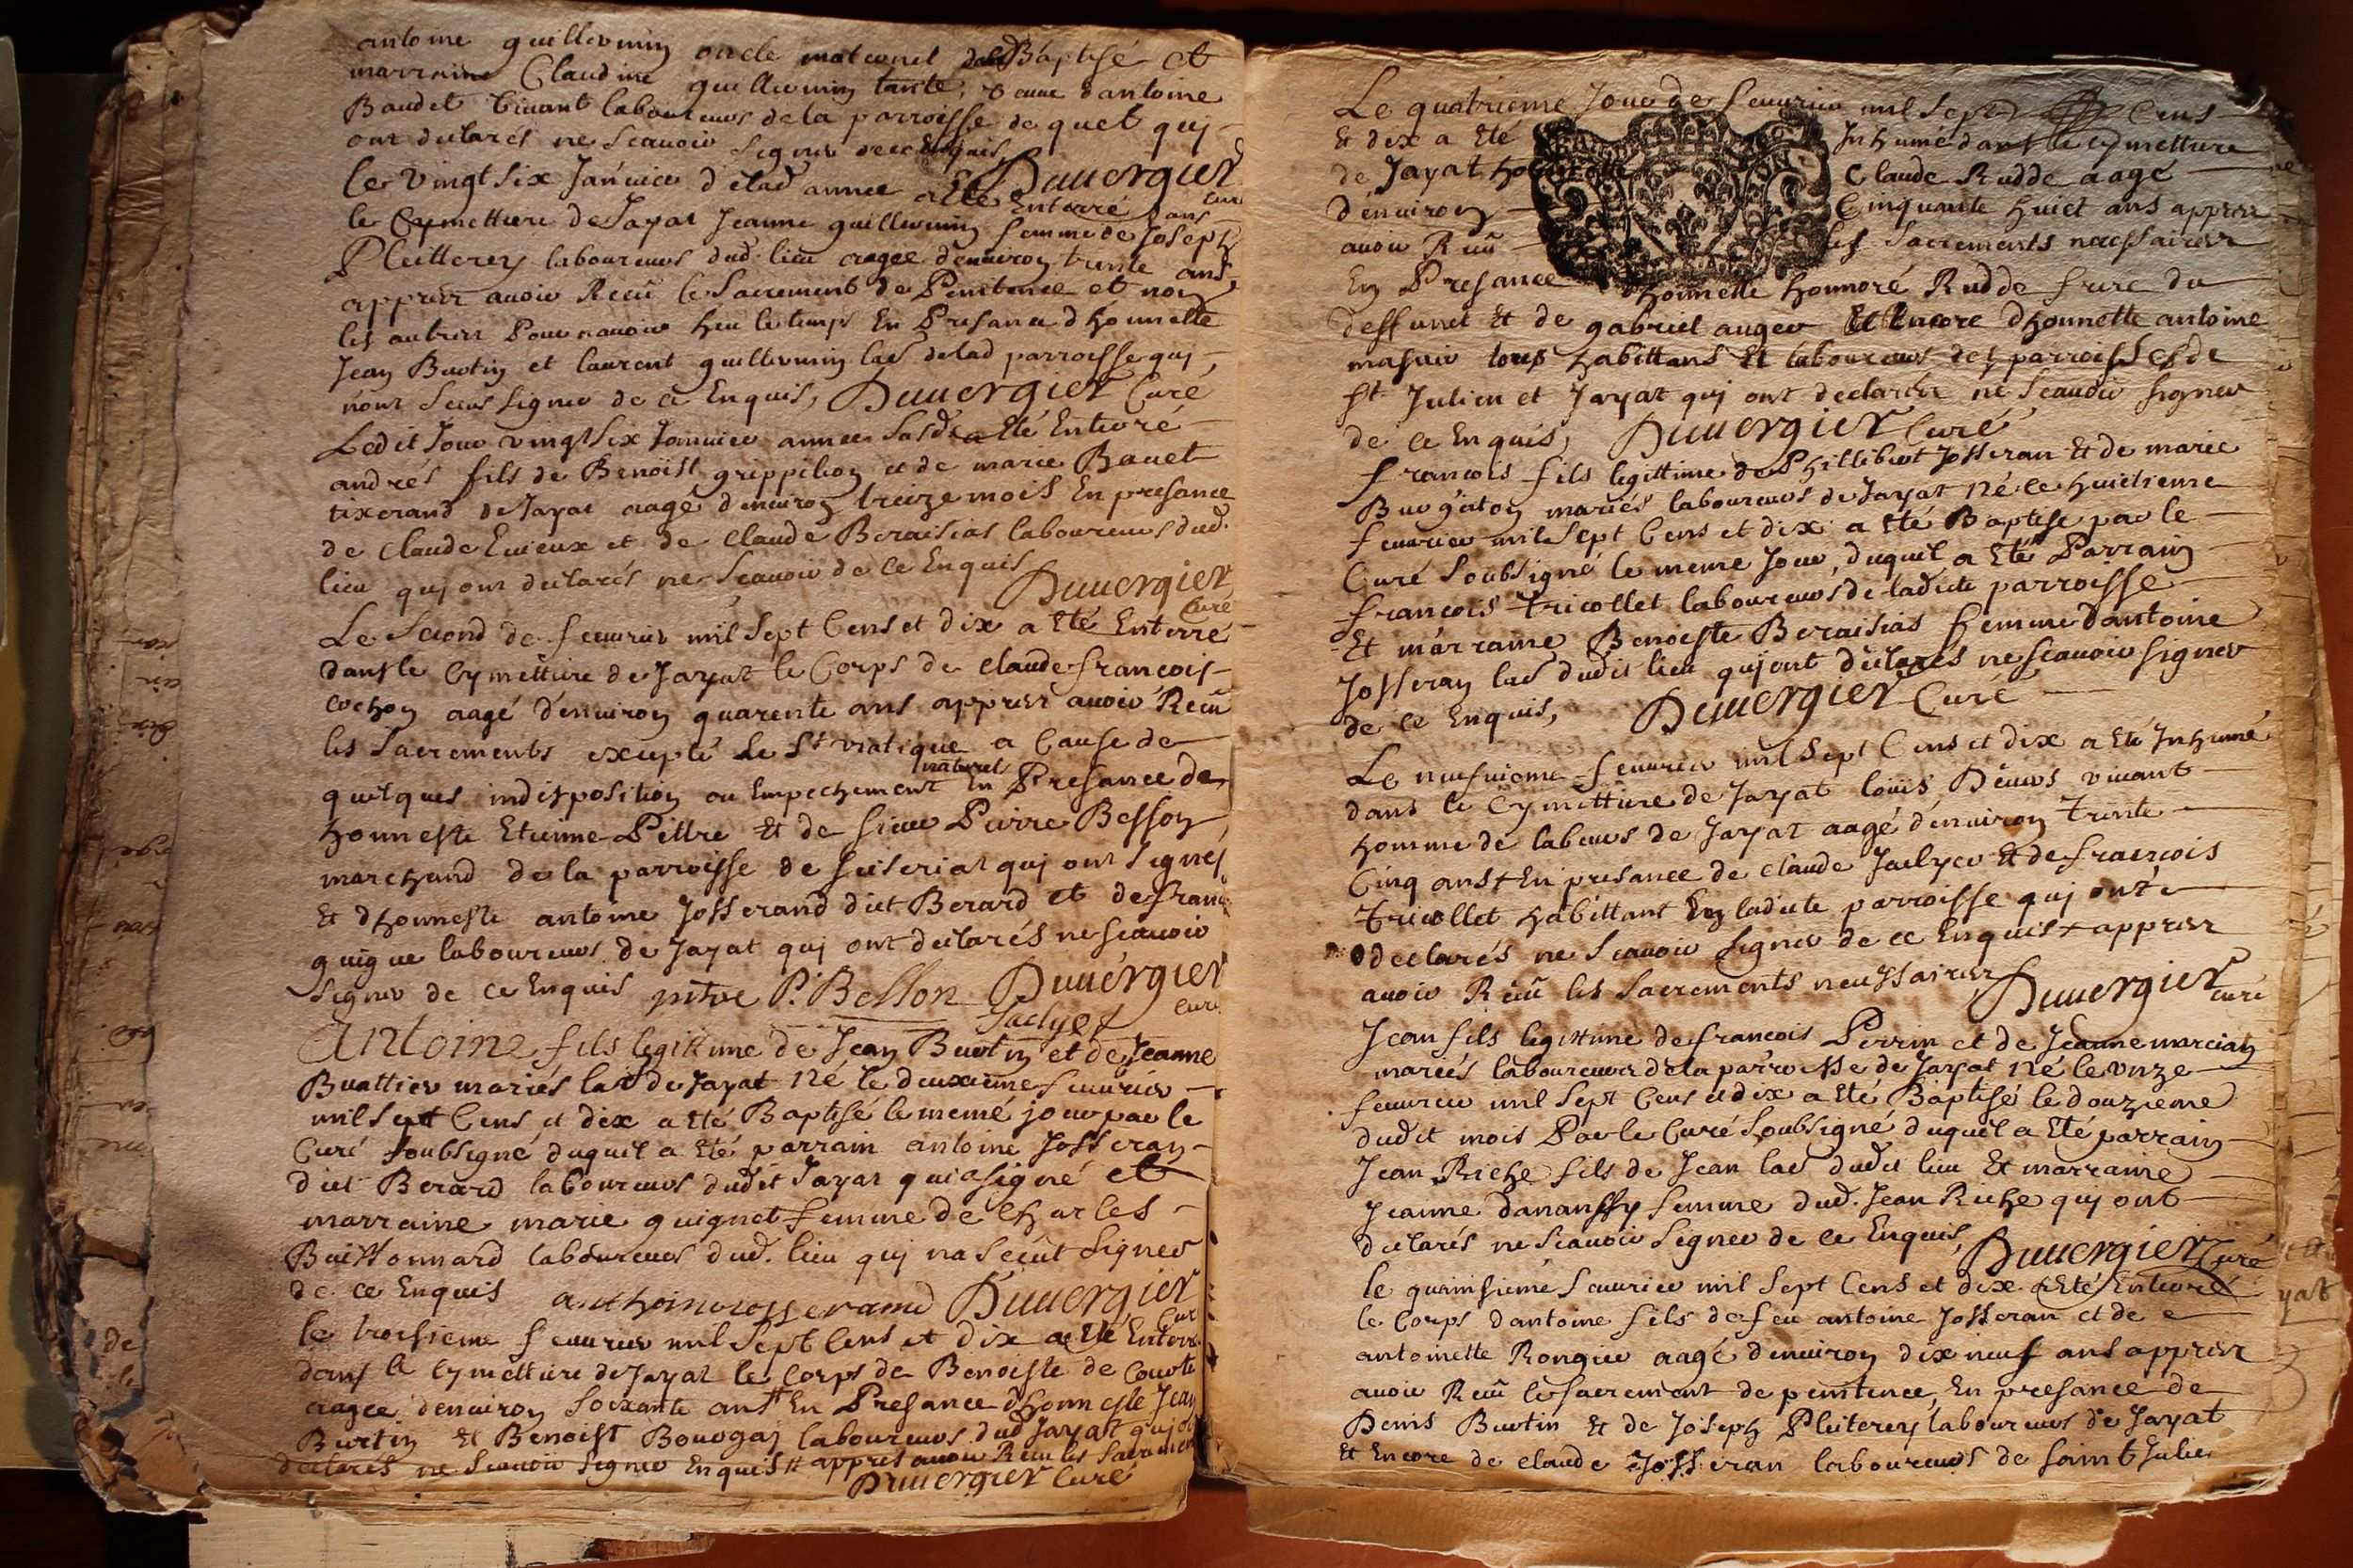 antoine guillermin oncle maternel dud Baptisé et
marraine Claudine guillermin tante, veuve d'antoine
Baudet vivant laboureur de la parroisse de quet quj
ont declarés ne scauoir signer de ce Enquis,
Duuergier curé
le vingt six Januier d'elad annee a Eté Enterré dans
le Cymettiere de Jayat Jeanne guillermin femme de Joseph
Pleitterey laboureur dud. lieu aagee denuiron trente ans,
apprez auoir Receu le Sacrement de Penitence et non
les autres Pour nauoir heu le temps En Presance d'honnette
Jean Burtin et laurent guillermin lab de lad parroisse quj
n'ont sceus signer de ce Enquis, Duuergier Curé
Ledit Jour vingt six Januier annee susd. a Eté Enterré
andrés fils de Benoist grippilion et de marie Bauet
tixerand de Jayat aagé denuiron treize mois En presance
de Claude Euieux et de Claude Beraisias laboureurs dud.
lieu quj ont declarés ne scauoir de ce Enquis
Duuergier Curé
Le Second de feurier mil Sept Cens et dix a Eté Enterré
dans le Cymettiere de Jayat le Corps de Claude francois
cochon aagé d'enuiron quarente ans apprez auoir Receu
les Sacrements excepté le St viatique a Cause de
quelques indisposition ou Empechement naturel En Presance de
honneste Etienne Pittre Et de sieur Pierre Besson
marchand de la parroisse de fuiseriat quj ont signes
Et d'honneste antoine Josserand dict Berard et de fran
guigue laboureurs de Jayat quj ont declarés ne scauoir
signer de ce Enquis pitre P. Besson Duuergier
Jaclyer curé
Antoine fils legittime de Jean Burtin et de Jeanne
Buattier mariés lab de Jayat Né le deuxieme feurier
mil sept Cens et dix a Eté Baptisé le meme jour par le
Curé soubsigné duquel a Eté parrain antoine Josseran
dict Berard laboureur dudit Jayat qui a signé et
marraine marie guignet femme de Charles
Buissonnard laboureur dud. lieu quj na sceut signer
de ce Enquis anthoine iosserand Duuergier
Cur
le troisieme feurier mil Sept Cens et dix a Eté Enterré
dans le Cymettiere de Jayat le Corps de Benoiste de Courte
aagee denuiron soixante ans # En Presance d'honneste Jean
Burtin Et Benoist Bouogaj laboureurs dud Jayat quj ont
declarés ne scauoir signer Enquis # appres auoir Receu les Sacrement
Duuergier Curé
Le quatrieme Jour de feurier mil Sept Cens
Et dix a Eté Jnhumé dans le Cymettiere
de Jayat honneste Claude Rudde aagé
d'enuiron Cinquante huict ans apprez
auoir Receu les Sacrements necessaires
En Presance d'honnette honnoré Rudde frere du
deffunct Et de gabriel auger Et Encore d'honnette antoine
masuir tous habittans Et laboureurs des parroisses de
St Julien et Jayat quj ont declarez ne scauoir signer
de ce Enquis, Duuergier Curé
francois fils legittime de Phillibert Josseran Et de marie
Burgiaton mariés laboureurs de Jayat Né le huictieme
feurier mil Sept Cens et dix a Eté Baptisé par le
Curé Soubsigné le meme Jour, duquel a Eté Parrain
francois Tricollet laboureur de ladicte parroisse
Et marraine Benoiste Beraisias femme dantoine
Josseran lab dudit lieu quj ont declarés ne scauoir signer
de ce Enquis, Duuergier Curé
Le neufuieme feurier mil Sept Cens et dix a Eté Jnhumé
dans le Cymettiere de Jayat louis Deuers viuant
homme de labeurs de Jayat aagé d'enuiron Trente
Cinq ans + En presance de Claude Jaclyer Et de francois
Tricollet habittant En ladicte parroisse quj ont
declarés ne scauoir signer de ce Enquis + apprez
auoir Receu les Sacrements necessaires
Duuergier curé
Jean fils legittime de francois Perrin et de Jeanne marcian
mariés laboureurs de la parroisse de Jayat Né le vnze
feurier mil Sept Cens et dix a Eté Baptisé le douzieme
dudit mois Par le Curé Soubsigné duquel a Eté parrain
Jean Riche fils de Jean lab dudit lieu Et marraine
Jeanne dananssy femme dud. Jean Riche quj ont
declarés ne scauoir signer de ce Enquis
Duuergier Curé
le quinsieme feurier mil Sept Cens et dix a Eté Enterré
le Corps d'antoine fils de feu antoine Josseran et de
antoinette Rongier aagé denuiron dix neuf ans apprez
auoir Receu le Sacrement de penitence, En presance de
Denis Burtin Et de Joseph Pleiterey laboureurs de Jayat
Et Encore de claude Josseran laboureurs de saint Julien